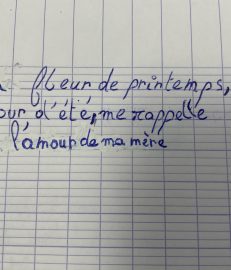 fleur de printemps,
d'été, me rappelle
l'amour de ma mère